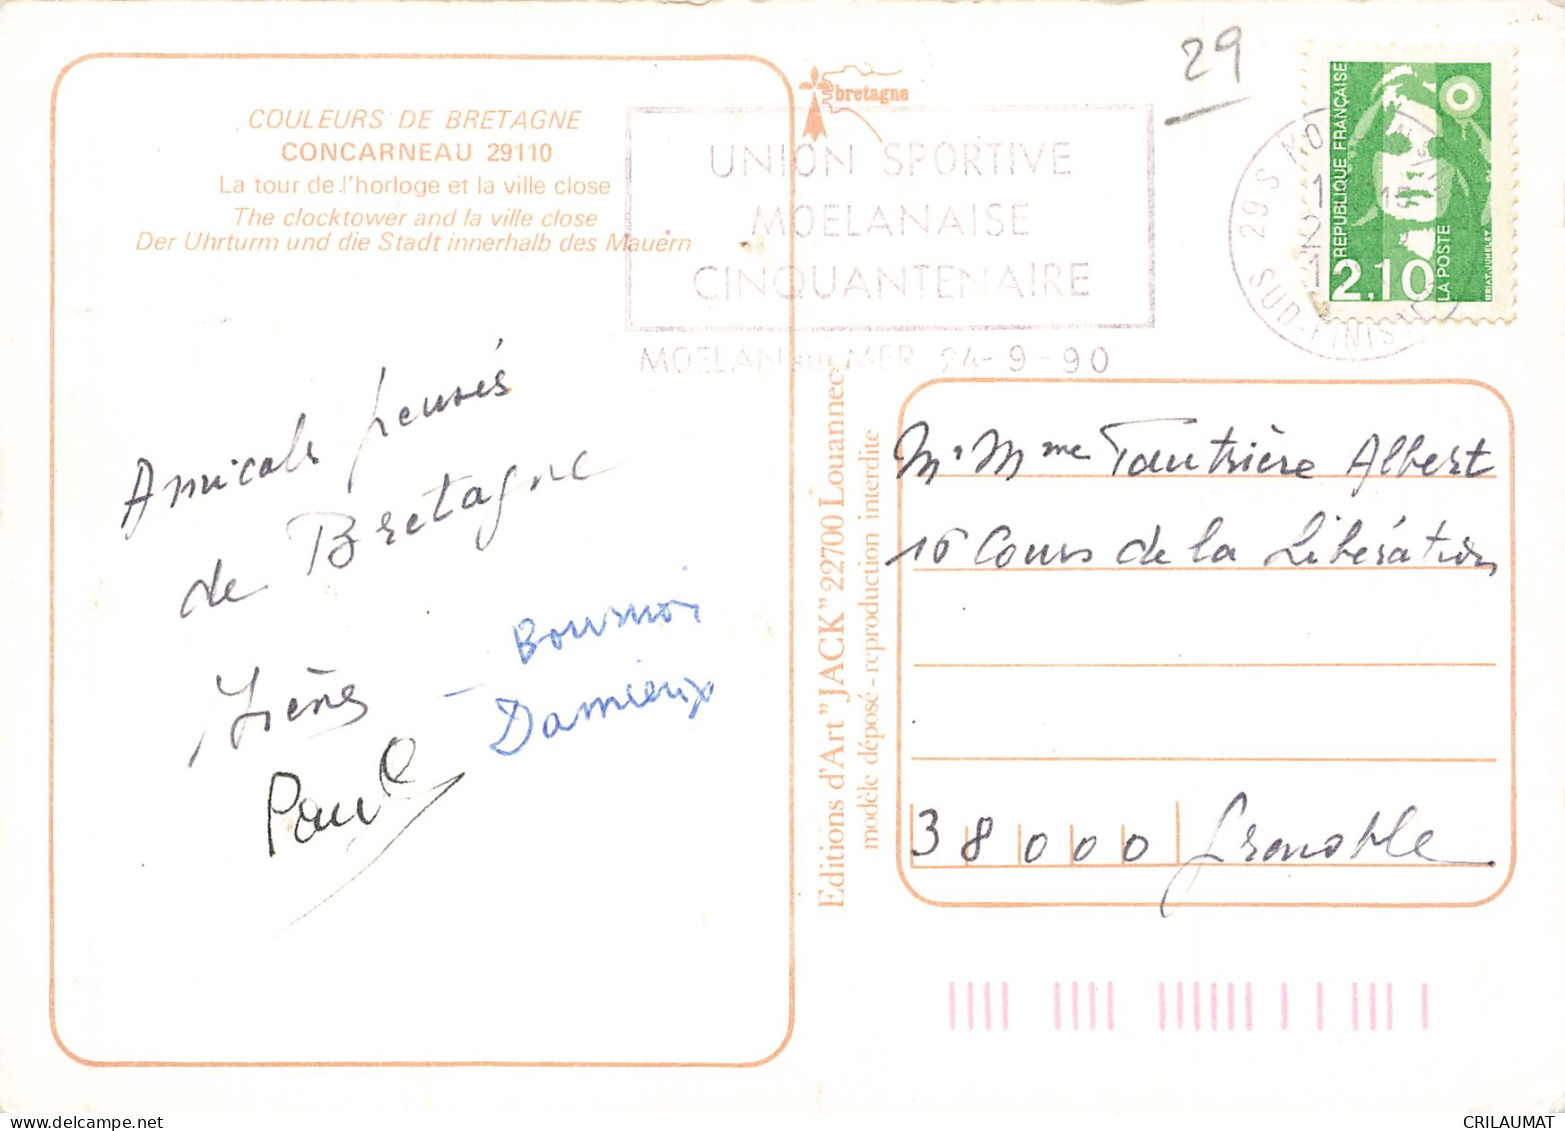 COULEURS DE BRETAGNE
CONCARNEAU 29110
La tour de l'horloge et la ville close
The clocktower and la ville close
Der Uhrturm und die Stadt innerhalb des Mauern
bretagne
29
UNION SPORTIVE
MOELANAISE
CINQUANTENAIRE
MOELAN sur MER 24-9-90
29 S
SUD-FINIST
REPUBLIQUE FRANÇAISE
2,10
LA POSTE
Amicals pensés
de Bretagne
Irène
Paul
Editions d'Art "JACK" 22700 Louannec
modèle déposé - reproduction interdite
Mr Mme Tautrière Albert
16 Cours de la Libération
38000 Grenoble
CRILAUMAT